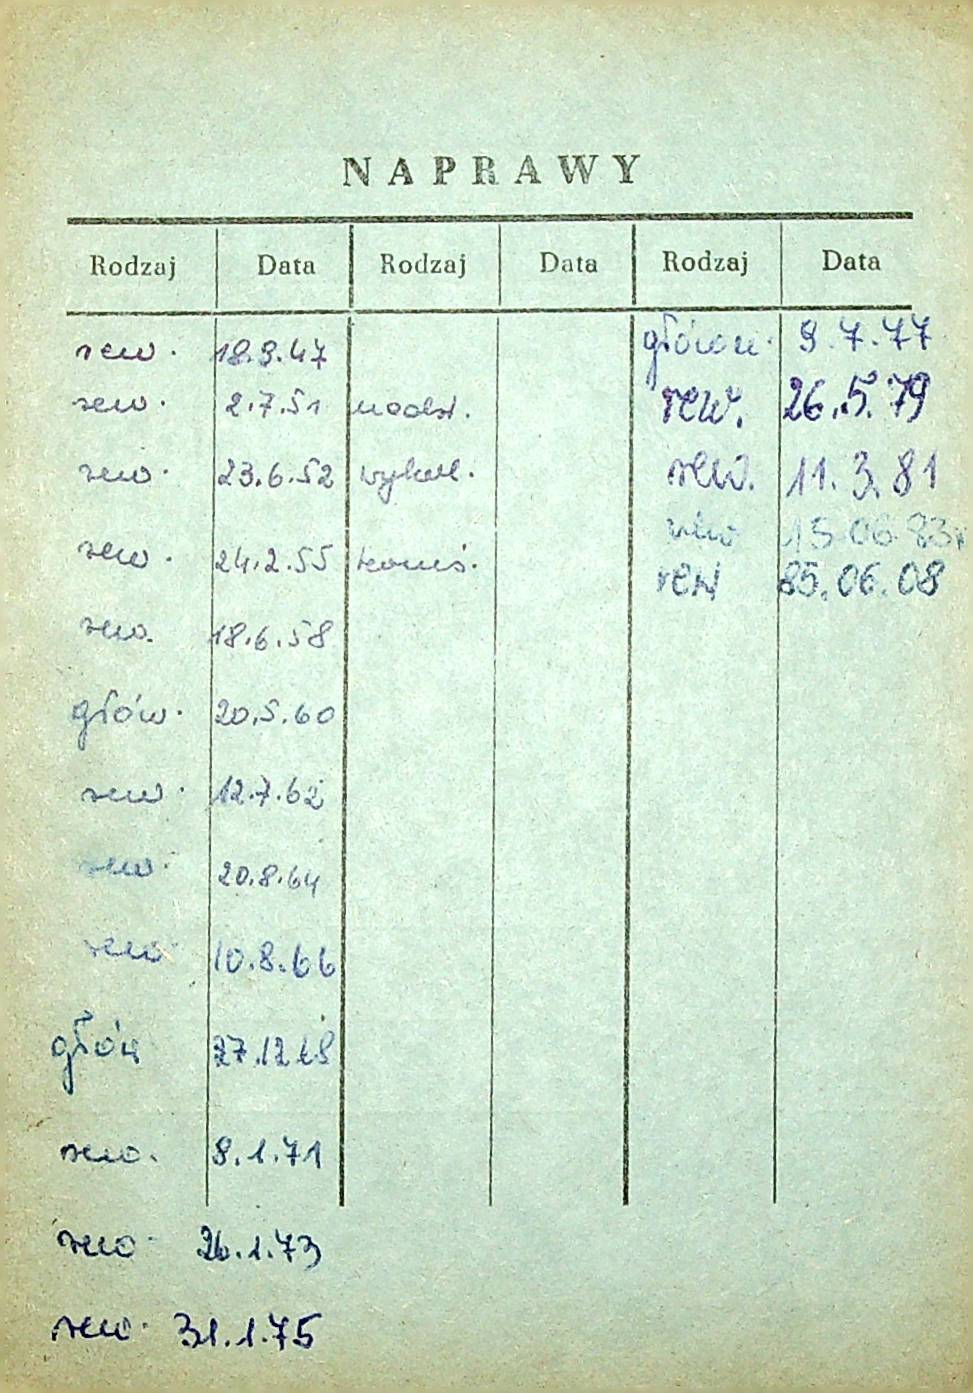 NAPRAWY
Rodzaj Data Rodzaj Data Rodzaj Data
rew. 18.9.47 główn. 9.7.77
rew. 2.7.51 nadst. rew. 26.5.79
rew. 23.6.52 wykol. rew. 11.3.81
rew 15.06.83r
rew. 24.2.55 konś. rew 85.06.08
rew. 18.6.58
głów. 20.5.60
rew. 12.7.62
rew. 20.8.64
rew. 10.8.66
głów 27.12.68
rew. 8.1.71
rew. 26.1.73
rew. 31.1.75